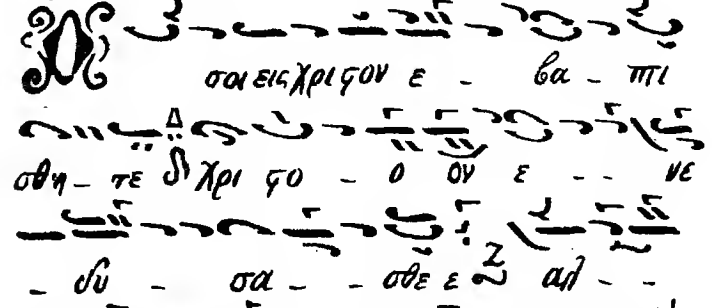 Ο σοι εις Χριςον ε - βα - πτι
σθη - τε Χρι ςο - ο ον ε - - νε
- δυ - σα - - σθε ε αλ - -